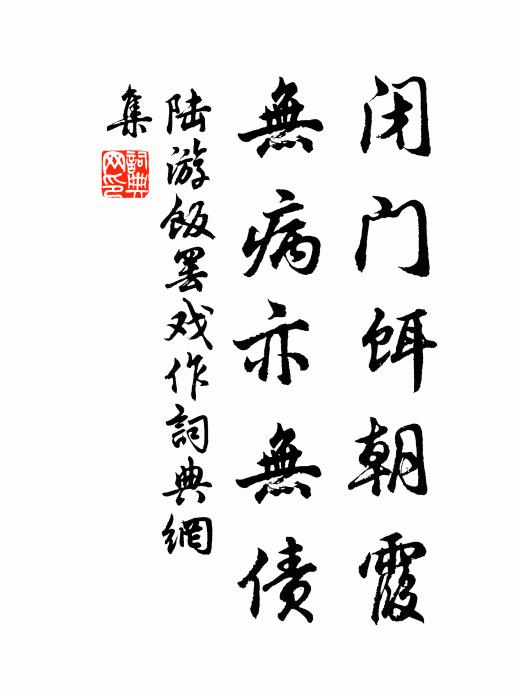 闭门饵朝霞
無病亦無债
陆游飯罢戏作詞典網
集
詞典
网印